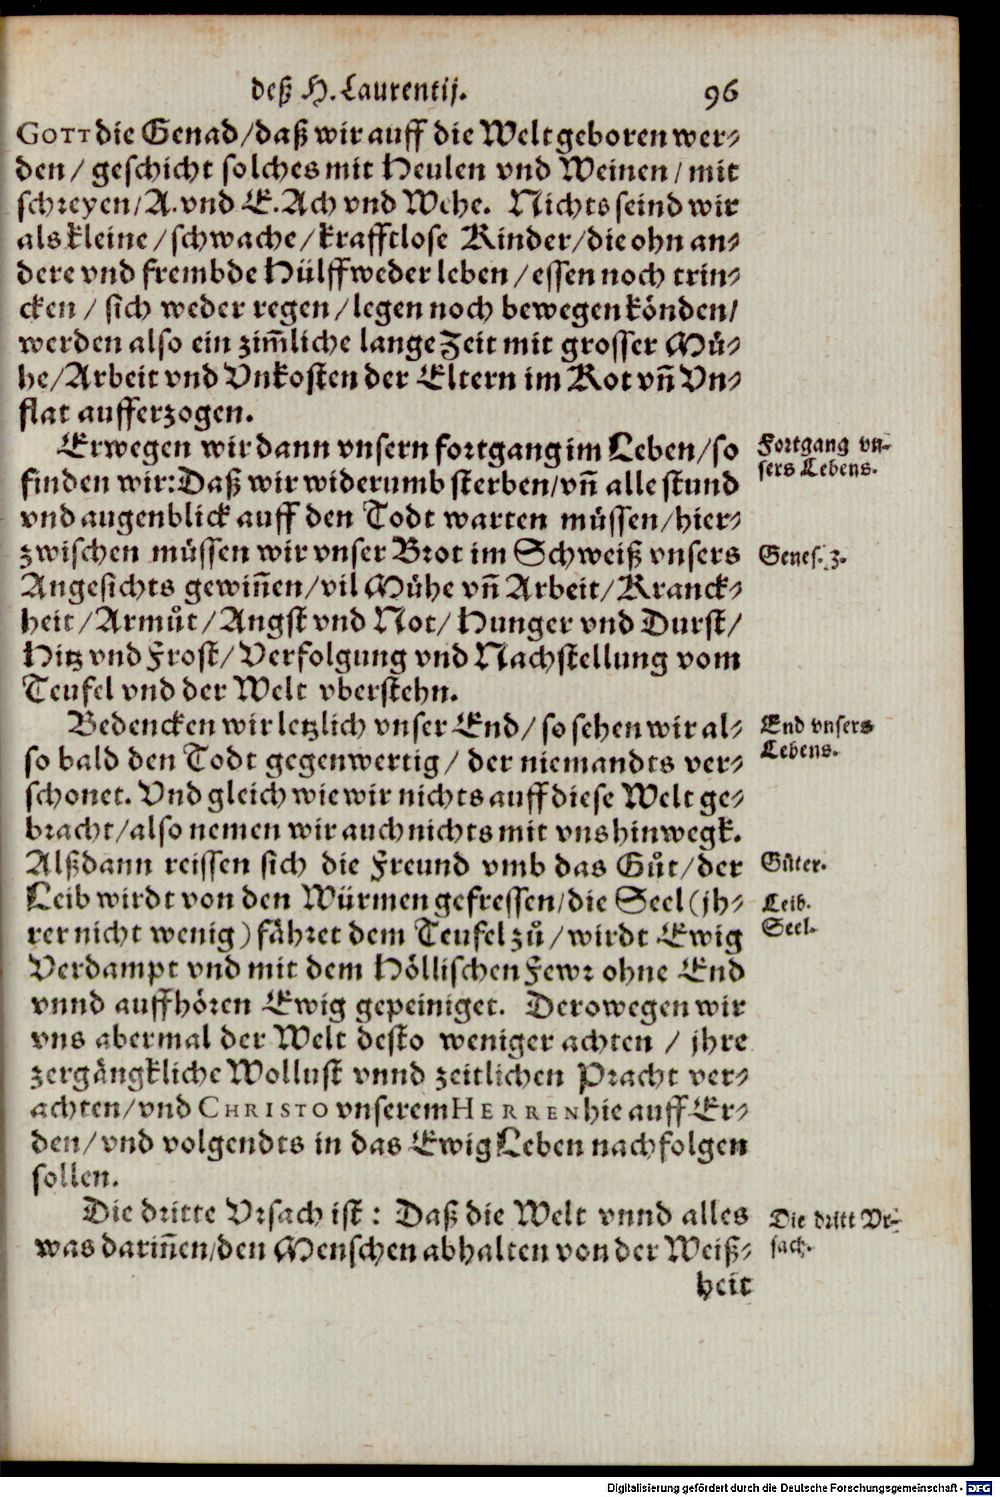 deß H. Laurentij. 96
GOTT die Genad/daß wir auff die Welt geboren wer-
den/ geschicht solches mit Heulen vnd Weinen/ mit
schreyen/A. vnd E. Ach vnd Wehe. Nichts seind wir
als kleine/schwache/krafftlose Kinder/die ohn an-
dere vnd frembde Hülff weder leben/essen noch trin-
cken/ sich weder regen/legen noch bewegen könden/
werden also ein zim̃liche lange Zeit mit grosser Mü-
he/Arbeit vnd Vnkosten der Eltern im Kot vñ Vn-
flat aufferzogen.
Erwegen wir dann vnsern fortgang im Leben/so
Fortgang vn-
sers Lebens.
finden wir: Daß wir widerumb sterben/vñ alle stund
vnd augenblick auff den Todt warten müssen/hier-
zwischen müssen wir vnser Brot im Schweiß vnsers
Genes. 3.
Angesichts gewiñen/vil Mühe vñ Arbeit/Kranck-
heit/Armůt/Angst vnd Not/Hunger vnd Durst/
Hitz vnd Frost/Verfolgung vnd Nachstellung vom
Teufel vnd der Welt vberstehn.
Bedencken wir letzlich vnser End/so sehen wir al-
End vnsers
Lebens.
so bald den Todt gegenwertig/ der niemandts ver-
schonet. Vnd gleich wie wir nichts auff diese Welt ge-
bracht/also nemen wir auch nichts mit vns hinwegk.
Alßdann reissen sich die Freund vmb das Gůt/der
Güter.
Leib wirdt von den Würmen gefressen/die Seel (jh-
Leib.
Seel.
rer nicht wenig) fähret dem Teufel zů/wirdt Ewig
Verdampt vnd mit dem Höllischen Fewr ohne End
vnnd auffhören Ewig gepeiniget. Derowegen wir
vns abermal der Welt desto weniger achten / jhre
zergängkliche Wollust vnnd zeitlichen Pracht ver-
achten/vnd CHRISTO vnserem HERREN hie auff Er-
den/vnd volgendts in das Ewig Leben nachfolgen
sollen.
Die dritte Vrsach ist: Daß die Welt vnnd alles
Die dritt Vr-
sach.
was dariñen/den Menschen abhalten von der Weiß-
heit
Digitalisierung gefördert durch die Deutsche Forschungsgemeinschaft - DFG